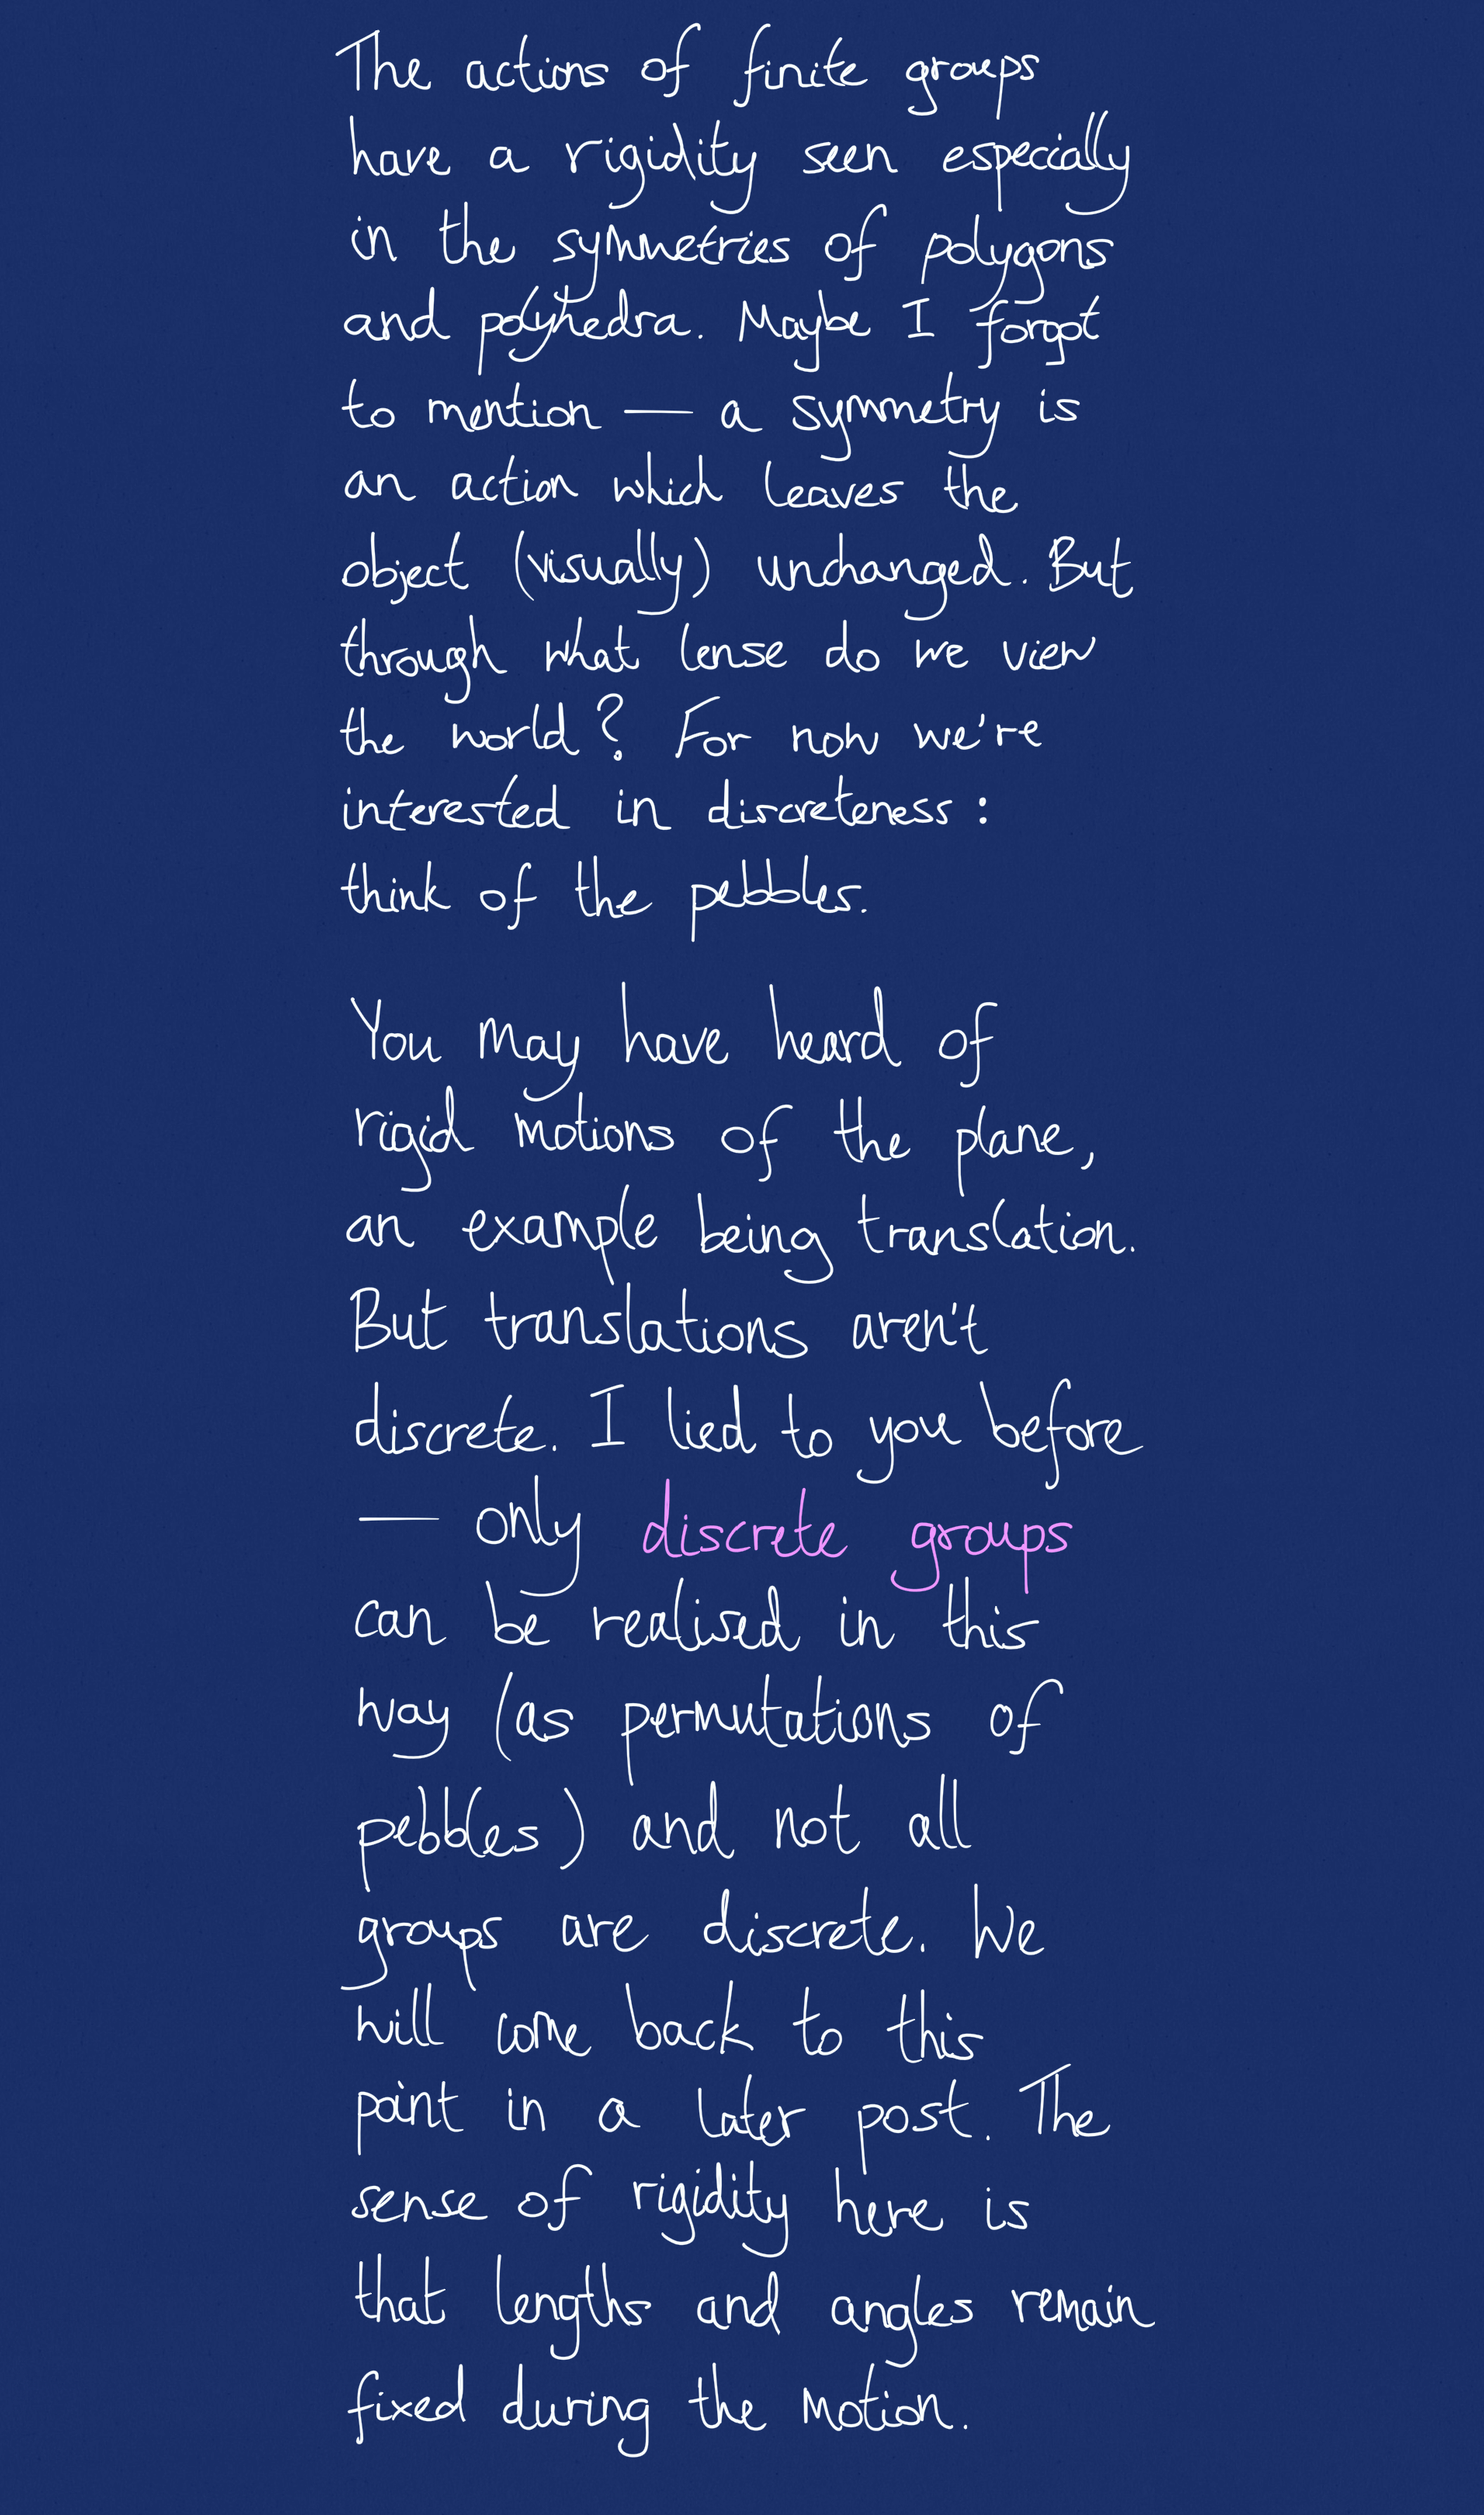 The actions of finite groups
have a rigidity seen especially
in the symmetries of polygons
and polyhedra. Maybe I forgot
to mention — a symmetry is
an action which leaves the
object (visually) unchanged. But
through what lense do we view
the world? For now we're
interested in discreteness:
think of the pebbles.
You may have heard of
rigid motions of the plane,
an example being translation.
But translations aren't
discrete. I lied to you before
— only discrete groups
can be realised in this
way (as permutations of
pebbles) and not all
groups are discrete. We
will come back to this
point in a later post. The
sense of rigidity here is
that lengths and angles remain
fixed during the motion.